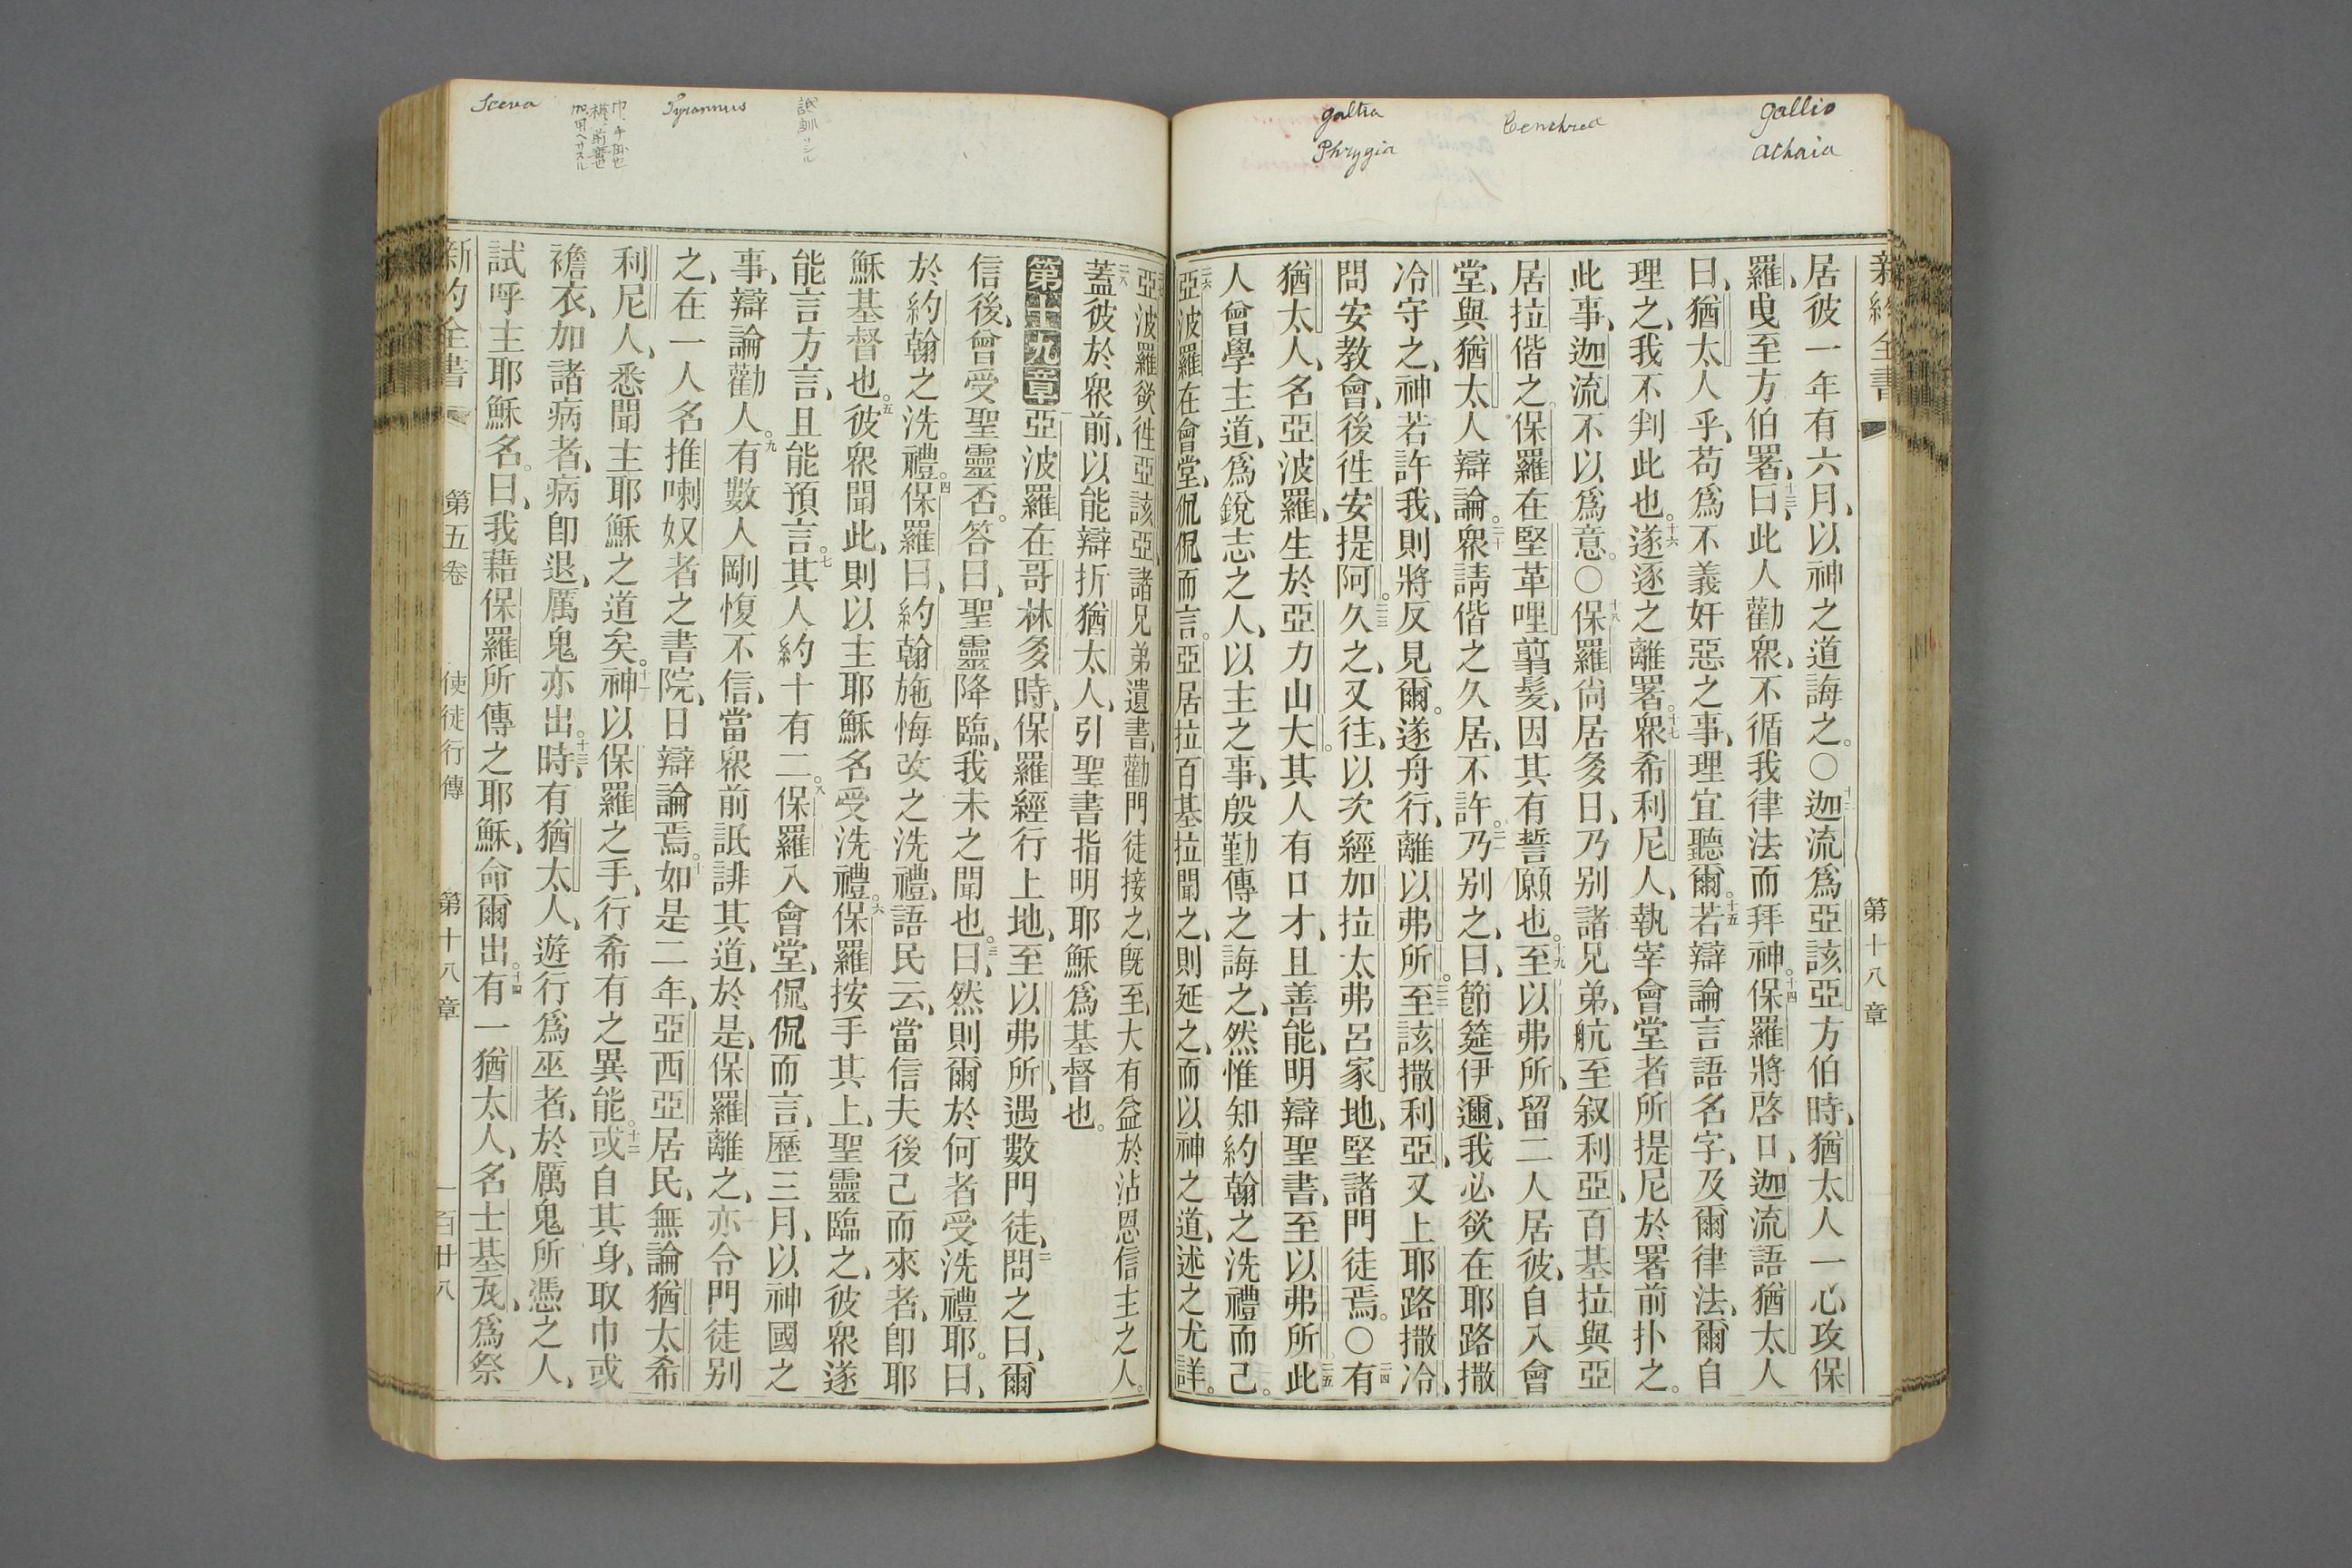 gallio
achaia
Cenchrea
galtia
Phrygia
新約全書
第十八章
居彼一年有六月、以神之道誨之。〇十二迦流爲亞該亞方伯時、猶太人一心攻保
羅、曳至方伯署、十三曰、此人勸衆、不循我律法而拜神。十四保羅將啓口、迦流語猶太人
曰、猶太人乎、苟爲不義奸惡之事、理宜聽爾。十五若辯論言語名字、及爾律法、爾自
理之、我不判此也。十六遂逐之離署。十七衆希利尼人、執宰會堂者所提尼於署前扑之。
此事、迦流不以爲意。〇十八保羅尙居多日、乃别諸兄弟、航至叙利亞、百基拉與亞
居拉偕之。保羅在堅革哩翦髮、因其有誓願也。十九至以弗所、留二人居彼、自入會
堂、與猶太人辯論。二十衆請偕之久居、不許。二一乃别之、曰、節筵伊邇、我必欲在耶路撒
冷守之、神若許我、則將反見爾。遂舟行、離以弗所。二二至該撒利亞、又上耶路撒冷、
問安敎會、後徃安提阿。二三久之、又往、以次經加拉太弗呂家地、堅諸門徒焉。〇二四有
猶太人、名亞波羅、生於亞力山大。其人有口才、且善能、明辯聖書、至以弗所、二五此
人曾學主道、爲銳志之人、以主之事、殷勤傳之誨之、然惟知約翰之洗禮而已。
二六亞波羅在會堂、侃侃而言。亞居拉百基拉聞之、則延之、而以神之道、述之尤詳。
亞波羅欲徃亞該亞、諸兄弟遺書、勸門徒接之、旣至、大有益於沾恩信主之人。
二八蓋彼於衆前、以能辯折猶太人、引聖書指明耶穌爲基督也。
第十九章 一亞波羅在哥林多時、保羅經行上地、至以弗所、遇數門徒、二問之曰、爾
信後、曾受聖靈否。答曰、聖靈降臨、我未之聞也。三曰、然則爾於何者受洗禮耶。曰、
於約翰之洗禮。四保羅曰、約翰施悔改之洗禮、語民云、當信夫後己而來者、卽耶
穌基督也。五彼衆聞此、則以主耶穌名受洗禮。六保羅按手其上、聖靈臨之、彼衆遂
能言方言、且能預言。七其人約十有二。八保羅入會堂、侃侃而言、歷三月、以神國之
事、辯論勸人。九有數人剛愎不信、當衆前詆誹其道、於是、保羅離之、亦令門徒别
之、在一人名推喇奴者之書院、日辯論焉。十如是二年、亞西亞居民、無論猶太希
利尼人、悉聞主耶穌之道矣。十一神以保羅之手、行希有之異能。十二或自其身、取巾或
襜衣、加諸病者、病卽退、厲鬼亦出。十三時、有猶太人、遊行爲巫者、於厲鬼所憑之人、
試呼主耶穌名。曰、我藉保羅所傳之耶穌、命爾出。十四有一猶太人、名士基瓦、爲祭
新約全書 第五卷 使徒行傳 第十八章 一百廿八
Tyrannus
Sceva